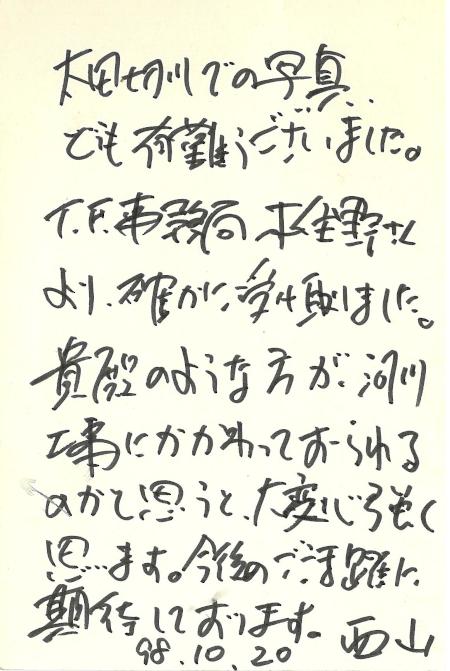 太田切川での写真
ども有難うございました。
T.F.事務局 椎野さん
より、確かに受け取りました。
貴殿のような方が、河川
工事にかかわっておられる
のかと思うと、大変心強く
思います。今後のご活躍に
期待しております。
98.10.20 西山